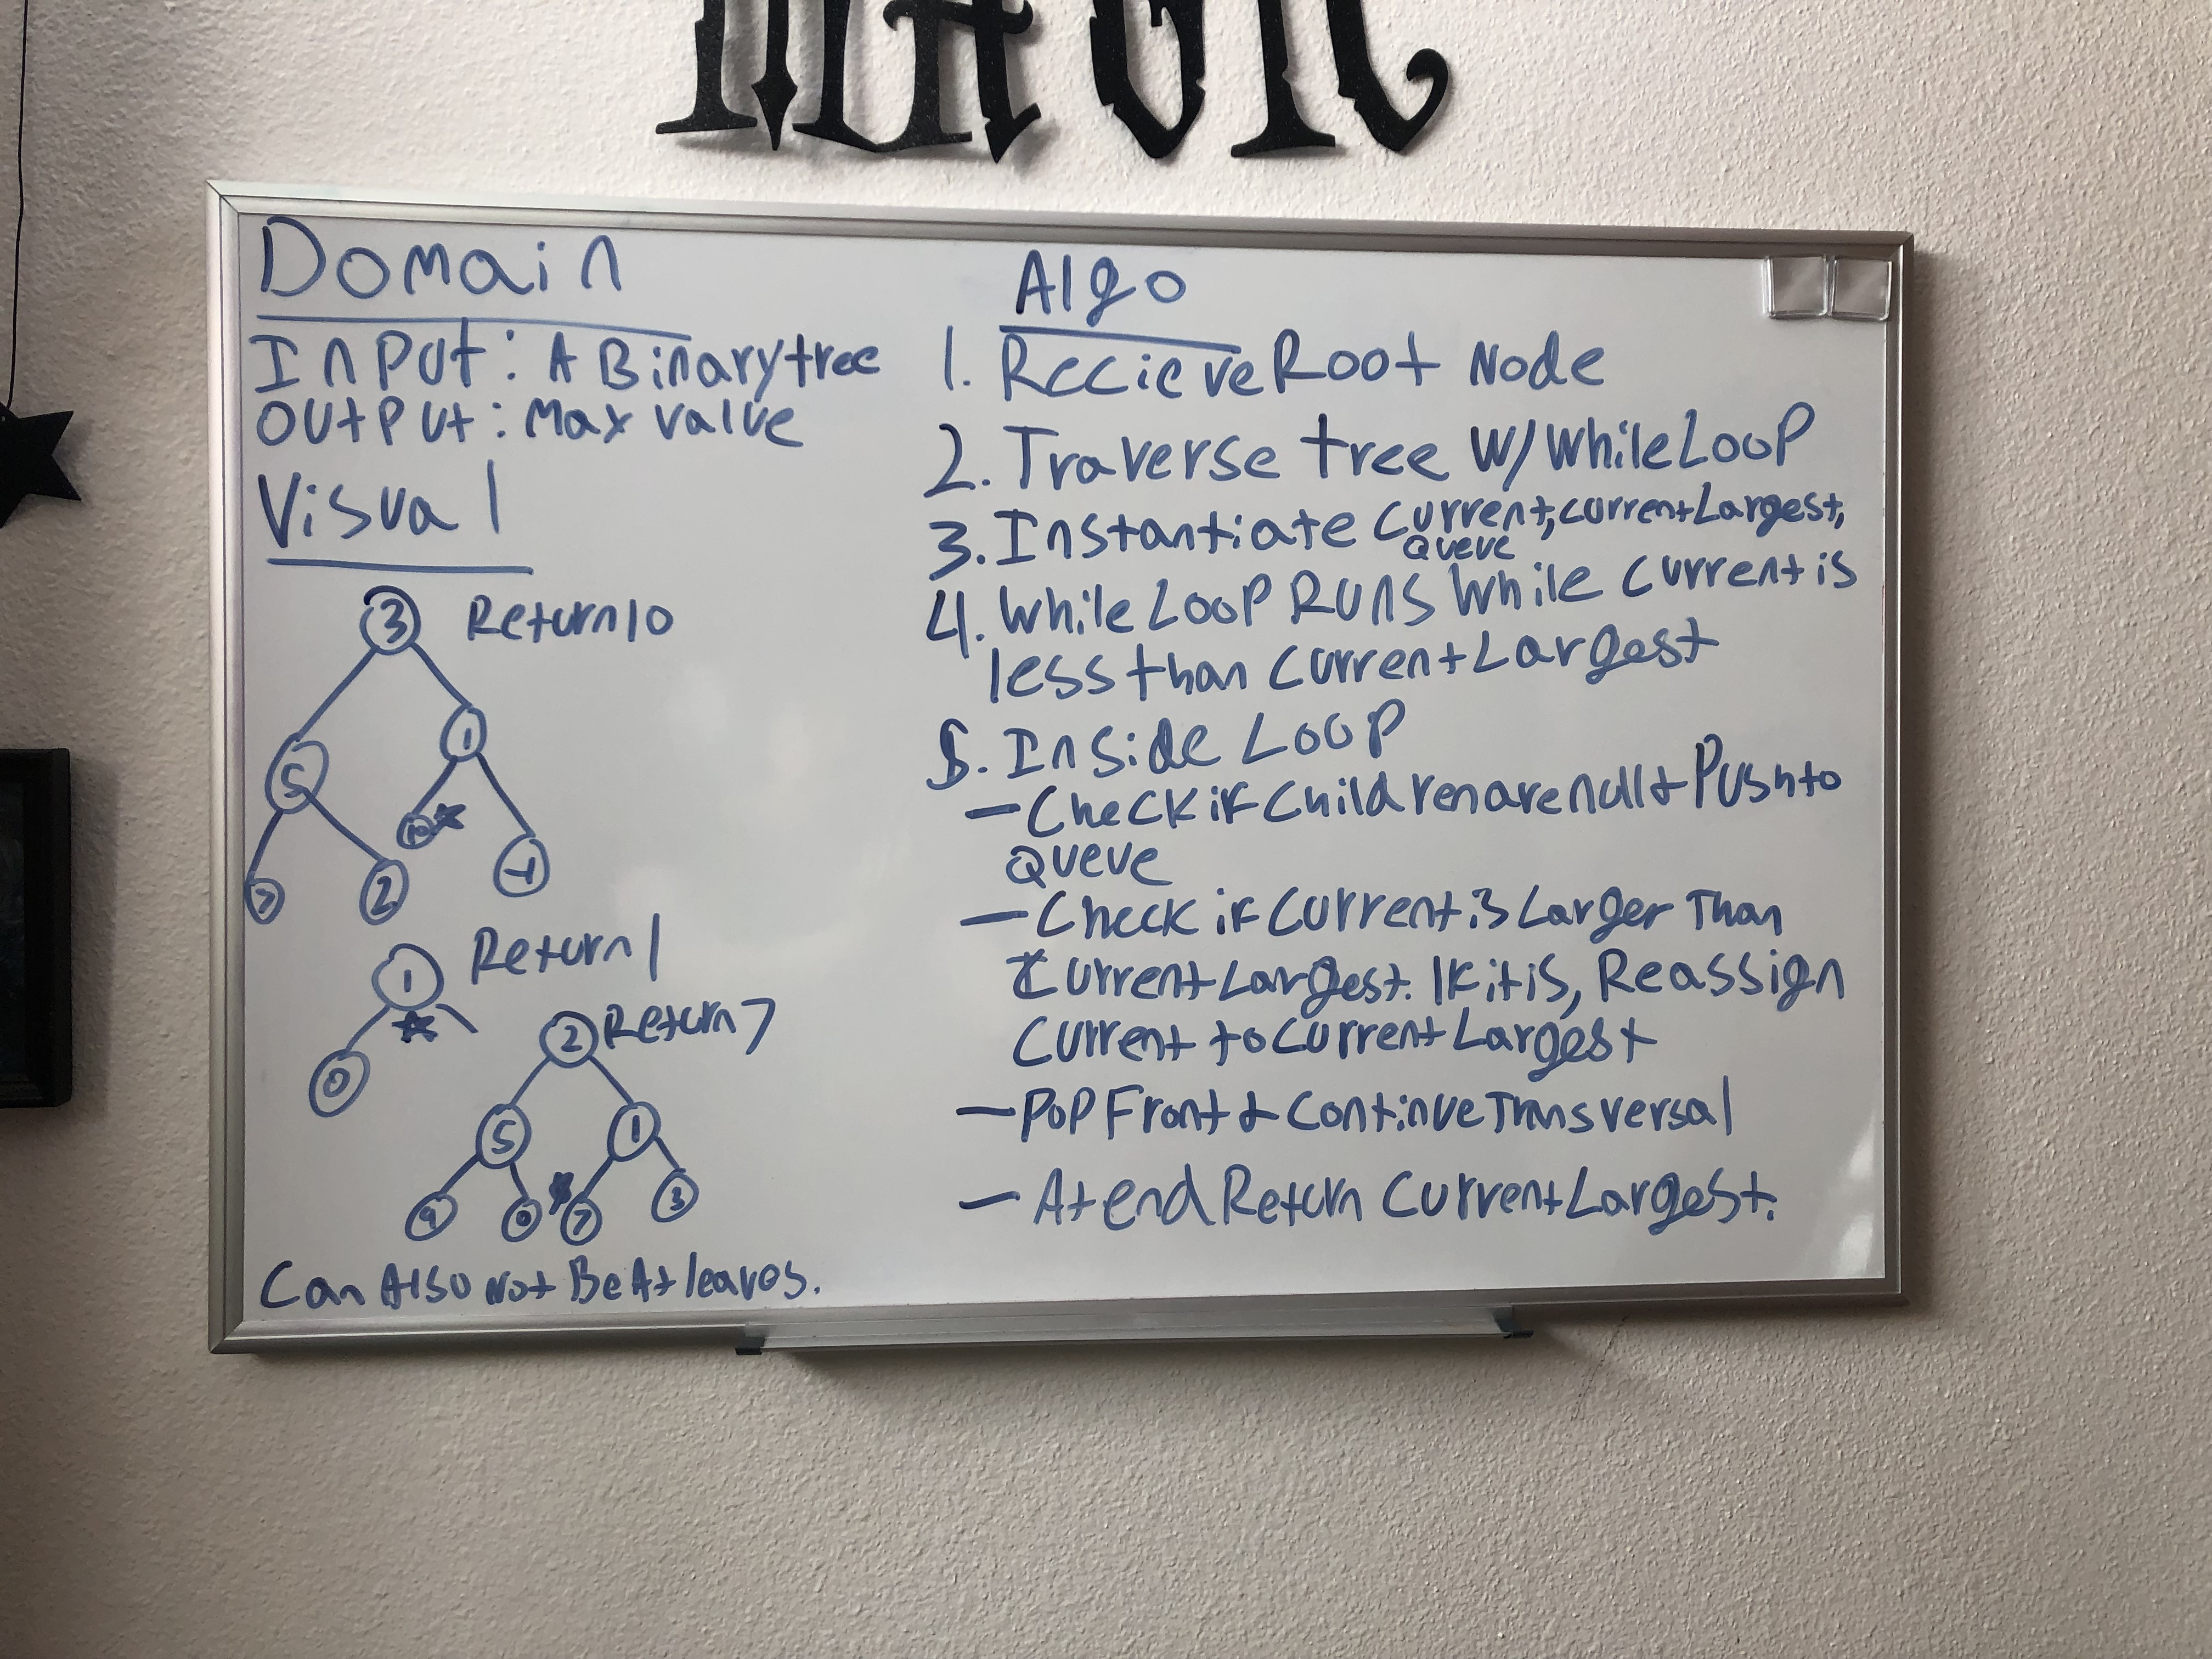 MAGIC
Domain
Input: A Binary tree
Output: Max value
Visual
3 Return 10
5 1
10
7 2 -1
1 Return 1
0
2 Return 7
5 1
0 7 3
Can Also Not Be At leaves.
Algo
1. Recieve Root Node
2. Traverse tree w/ while Loop
3. Instantiate current, currentLargest,
Queue
4. While Loop Runs while current is
less than currentLargest
5. Inside Loop
- Check if Children are null & Push to
Queue
- Check if Current is Larger Than
CurrentLargest. If it is, Reassign
Current to CurrentLargest
- Pop Front & Continue Transversal
- At end Return CurrentLargest.